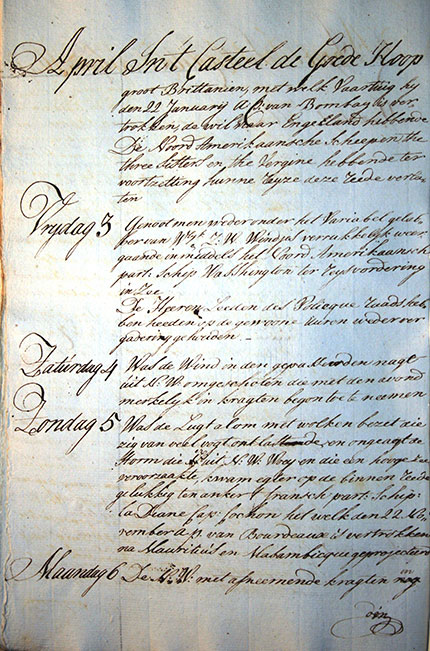 April In't Casteel de Goede Hoop
groot Brittanien, met welk Vaartuig hy
den 22 January A.p. van Bombay is ver-
trokken, de wil naar Engeland hebbende
De Noord Amerikaansche Scheepen, the
three Sisters en the Vergine hebbende ter
voortzetting hunne reyze deze Reede verla-
ten
Vrijdag 3 Genoot men weder onder het Variabel
van W. Windje verrukkelyk weer
gaande inmiddels het Noord Amerikaansch
part: Schip Washington ter
in Zee
De Heeren Leeden des Politicque Raads heb-
ben heeden op de gewoone uuren weder ver-
gadering gehouden
Zaturdag 4 Was de Wind in den nagt
uit N.W. omgeschoten die met den avond
merkelyk in kragten begon toe te neemen
Zondag 5 Was de Lugt alom met wolken bezet die
zig van veel vogt en ongeagt de
Storm die uit N.W. Woey en die een hooge Zee
veroorzaakte, kwam egter op de binnen Reede
gelukkig ten anker 't fransch part: Schip
la Diane Cap: Cochon het welk den 22 No-
vember a.p. van Bourdeaux is vertrokken
na Mauritius en Mosambicque geprojecteerd
Maandag 6 De N.W. met afneemende kragten in nog